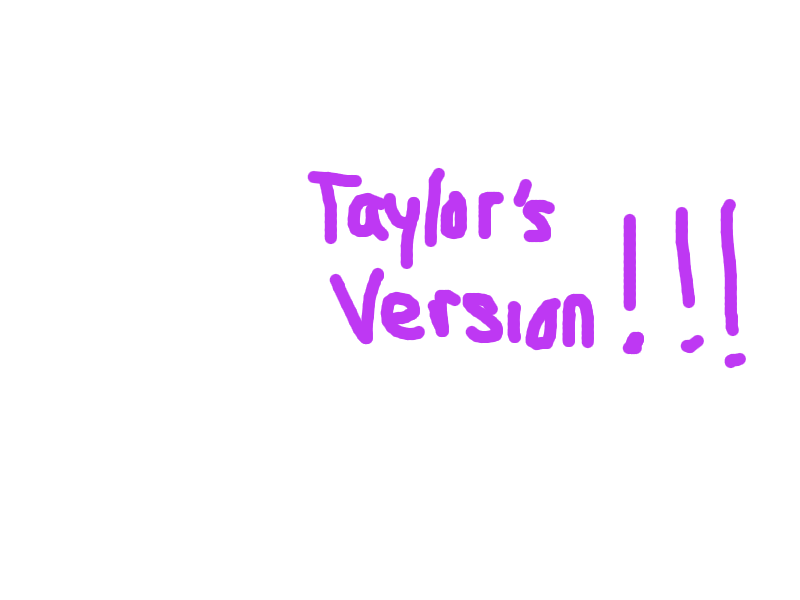 Taylor's
Version!!!